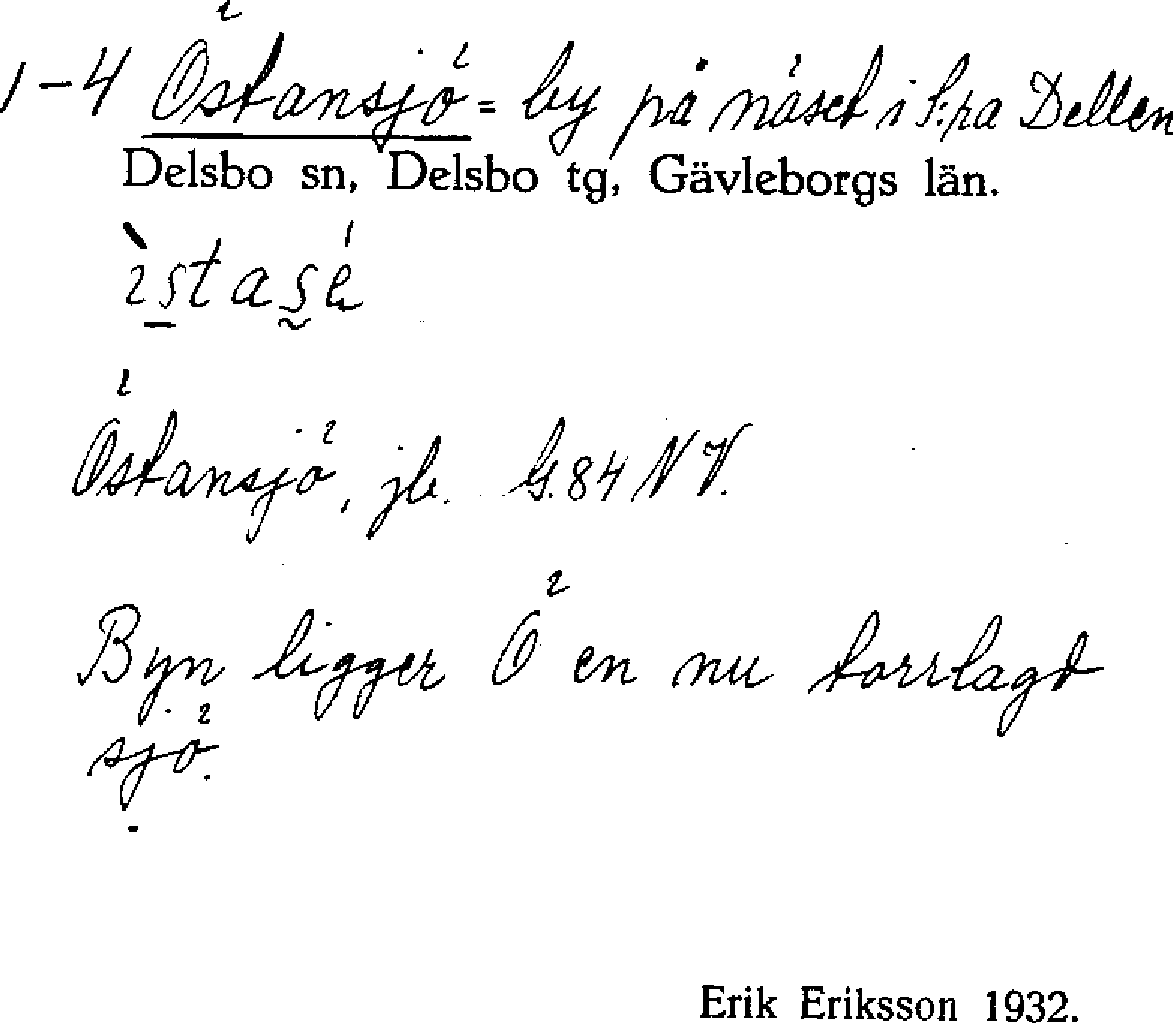 1-4 Östansjö = by på näset i S:ra Dellen
Delsbo sn, Delsbo tg, Gävleborgs län.
Östansjö, jb. G.84 NV.
Byn ligger Ö en nu torrlagd
sjö.
Erik Eriksson 1932.